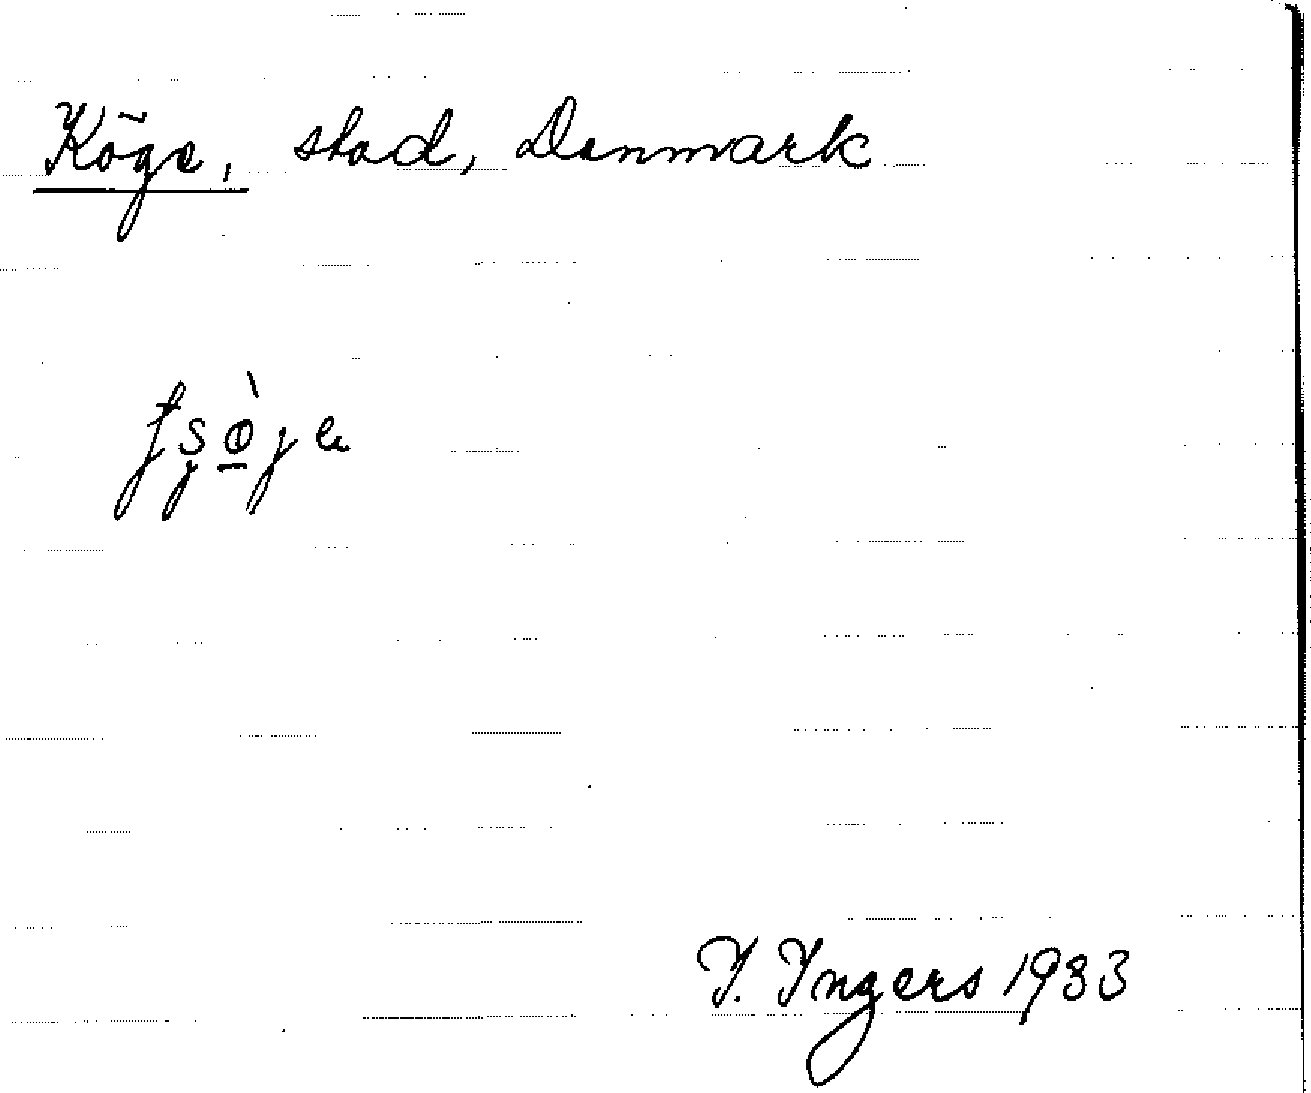 Köge, stad, Danmark
I. Ingers 1933